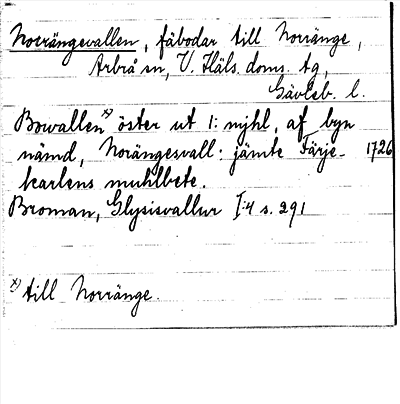 Norrängevallen, fäbodar till Norränge,
Arbrå sn, V. Häls. doms. tg,
Gävleb. l.
Bowallen x) öster ut 1: mjhl, af byn
nämd, Norängesvall: jämte Färje- 1726
karlens muhlbete.
Broman, Glysisvallur I:4 s. 291
x) till Norränge.